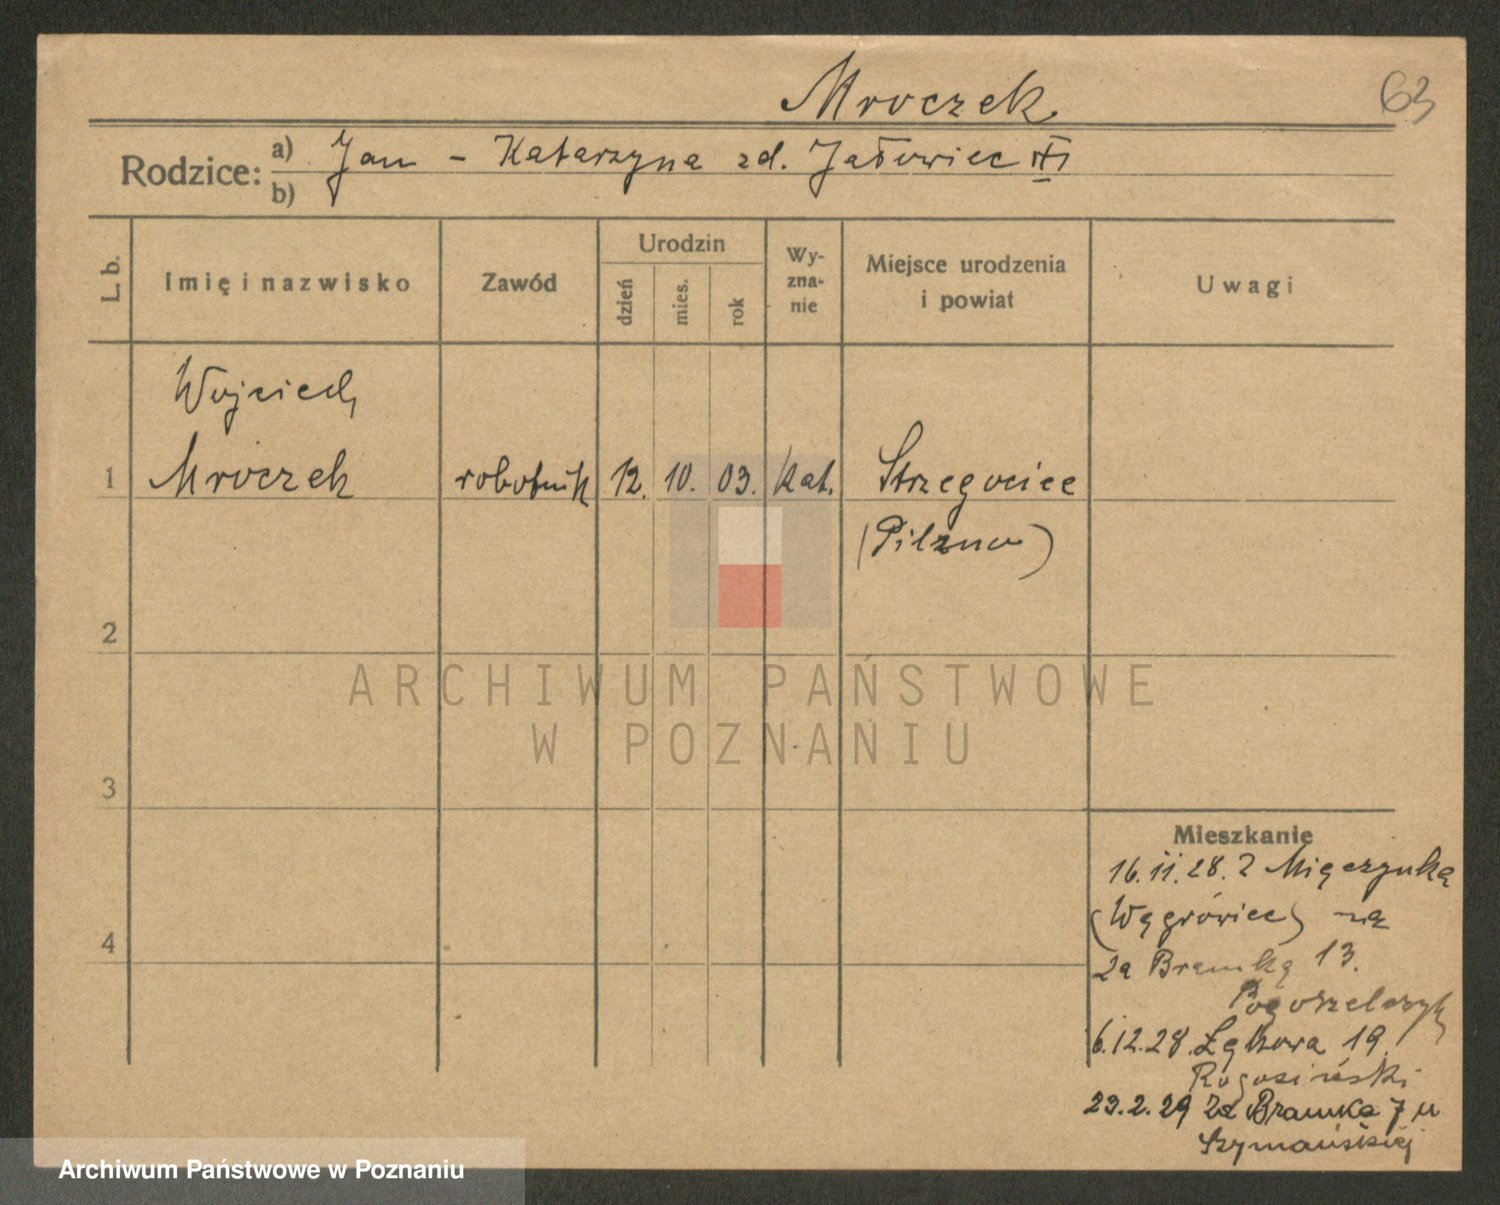 Mroczek
63
Rodzice: a) Jan - Katarzyna zd. Jałowiec
b)
L. b.
Imię i nazwisko
Zawód
Urodzin
dzień
mies.
rok
Wy-
zna-
nie
Miejsce urodzenia
i powiat
Uwagi
Wojciech
1 Mroczek robotnik 12. 10. 03. Kat. Strzegocice
(Pilzno)
2
3
4
Mieszkanie
16.11.28. z
(Wągrówiec) na
Za Bramką 13.
6.12.28. Łąkowa 19.
Rogosiński
23.2.29 Za Bramką 7 u
Szymańskiej
ARCHIWUM PAŃSTWOWE
W POZNANIU
Archiwum Państwowe w Poznaniu